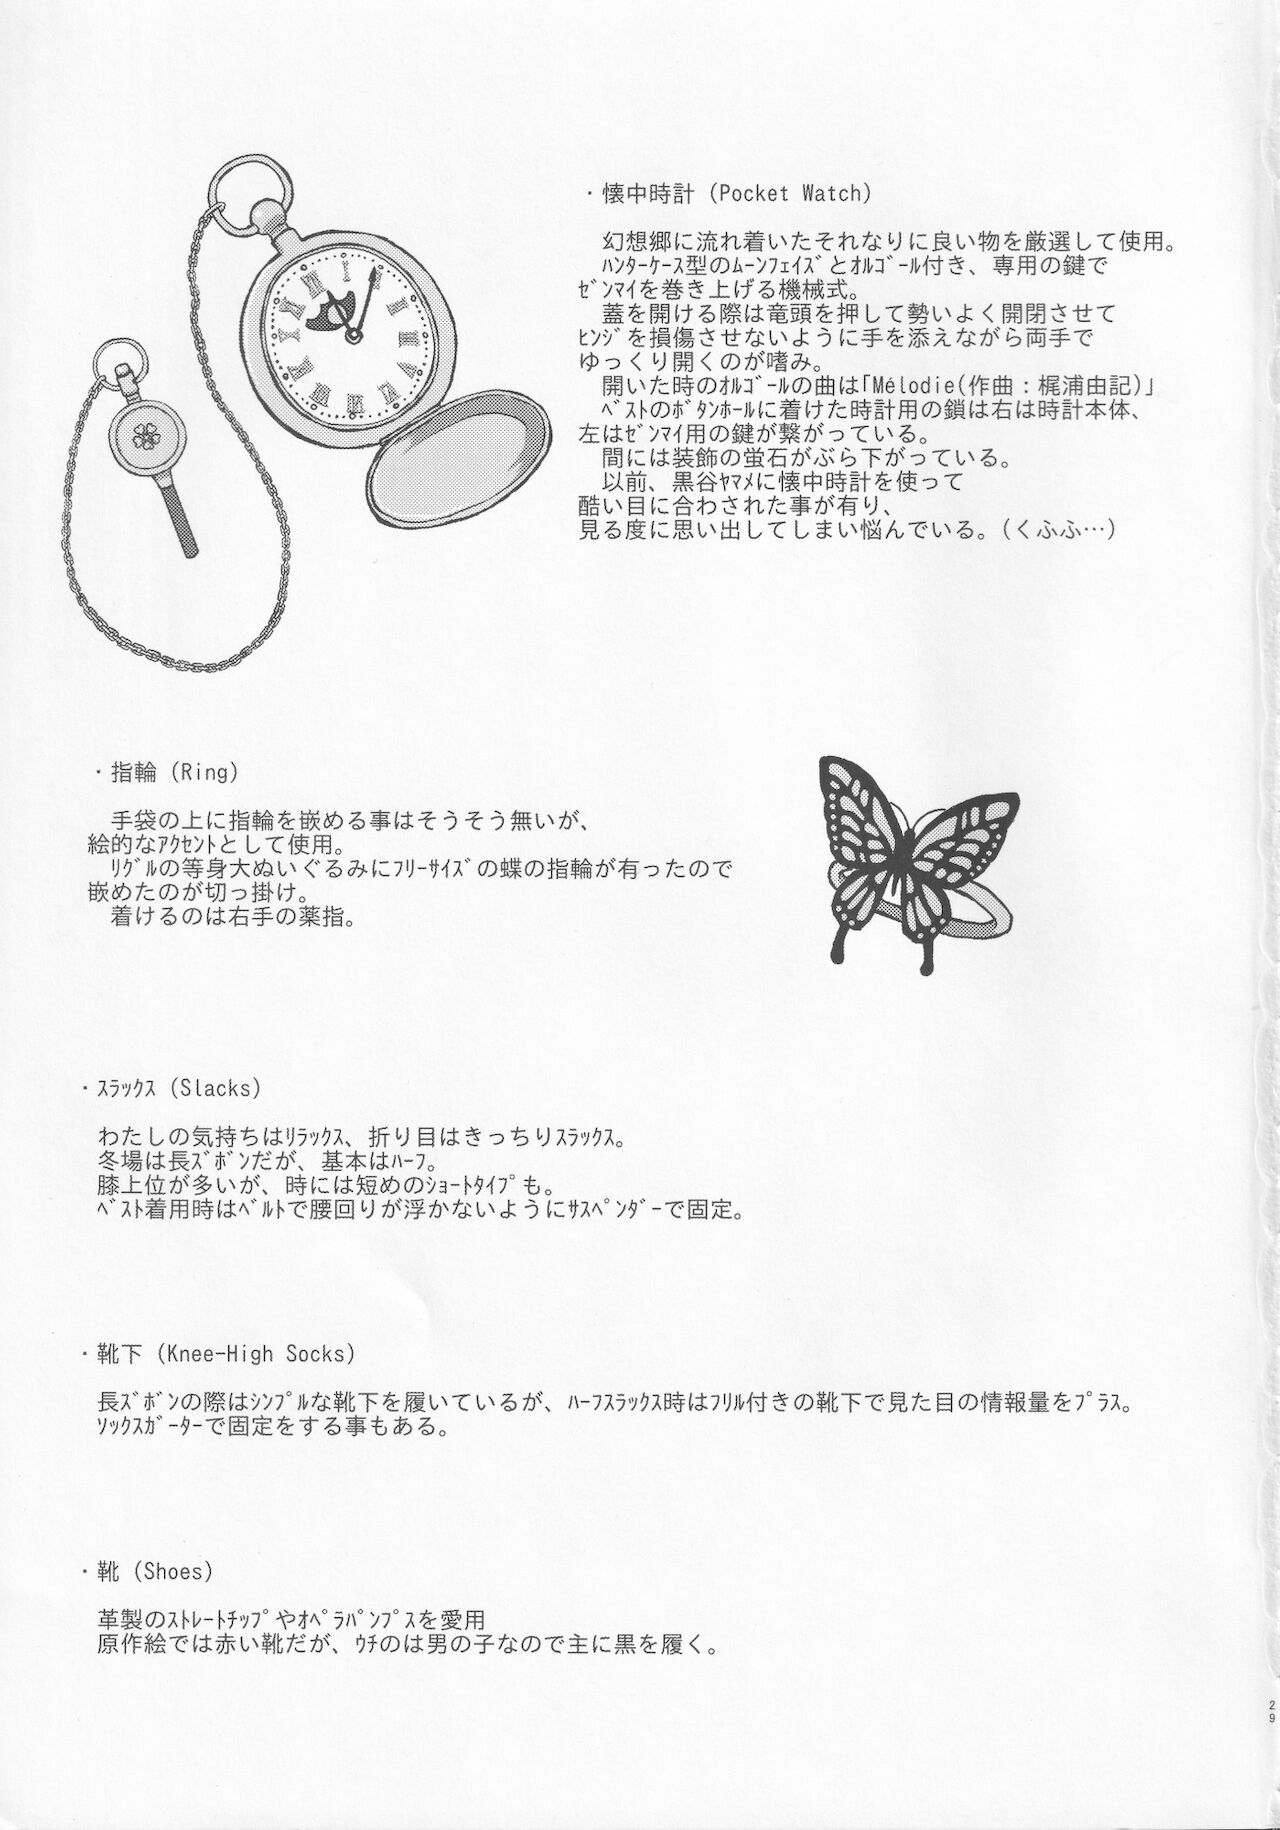 ・懐中時計 (Pocket Watch)
幻想郷に流れ着いたそれなりに良い物を厳選して使用。
ﾊﾝﾀｰｹｰｽ型のﾑｰﾝﾌｪｲｽﾞとｵﾙｺﾞｰﾙ付き、専用の鍵で
ｾﾞﾝﾏｲを巻き上げる機械式。
蓋を開ける際は竜頭を押して勢いよく開閉させて
ﾋﾝｼﾞを損傷させないように手を添えながら両手で
ゆっくり開くのが嗜み。
開いた時のｵﾙｺﾞｰﾙの曲は｢Mélodie(作曲：梶浦由記)｣
ﾍﾞｽﾄのﾎﾞﾀﾝﾎｰﾙに着けた時計用の鎖は右は時計本体、
左はｾﾞﾝﾏｲ用の鍵が繋がっている。
間には装飾の蛍石がぶら下がっている。
以前、黒谷ﾔﾏﾒに懐中時計を使って
酷い目に合わされた事が有り、
見る度に思い出してしまい悩んでいる。(くふふ…)
・指輪 (Ring)
手袋の上に指輪を嵌める事はそうそう無いが、
絵的なｱｸｾﾝﾄとして使用。
ﾘｸﾞﾙの等身大ぬいぐるみにﾌﾘｰｻｲｽﾞの蝶の指輪が有ったので
嵌めたのが切っ掛け。
着けるのは右手の薬指。
・ｽﾗｯｸｽ (Slacks)
わたしの気持ちはﾘﾗｯｸｽ、折り目はきっちりｽﾗｯｸｽ。
冬場は長ｽﾞﾎﾞﾝだが、基本はﾊｰﾌ。
膝上位が多いが、時には短めのｼｮｰﾄﾀｲﾌﾟも。
ﾍﾞｽﾄ着用時はﾍﾞﾙﾄで腰回りが浮かないようにｻｽﾍﾟﾝﾀﾞｰで固定。
・靴下 (Knee-High Socks)
長ｽﾞﾎﾞﾝの際はｼﾝﾌﾟﾙな靴下を履いているが、ﾊｰﾌｽﾗｯｸｽ時はﾌﾘﾙ付きの靴下で見た目の情報量をﾌﾟﾗｽ。
ｿｯｸｽｶﾞｰﾀｰで固定をする事もある。
・靴 (Shoes)
革製のｽﾄﾚｰﾄﾁｯﾌﾟやｵﾍﾟﾗﾊﾟﾝﾌﾟｽを愛用
原作絵では赤い靴だが、ｳﾁのは男の子なので主に黒を履く。
29